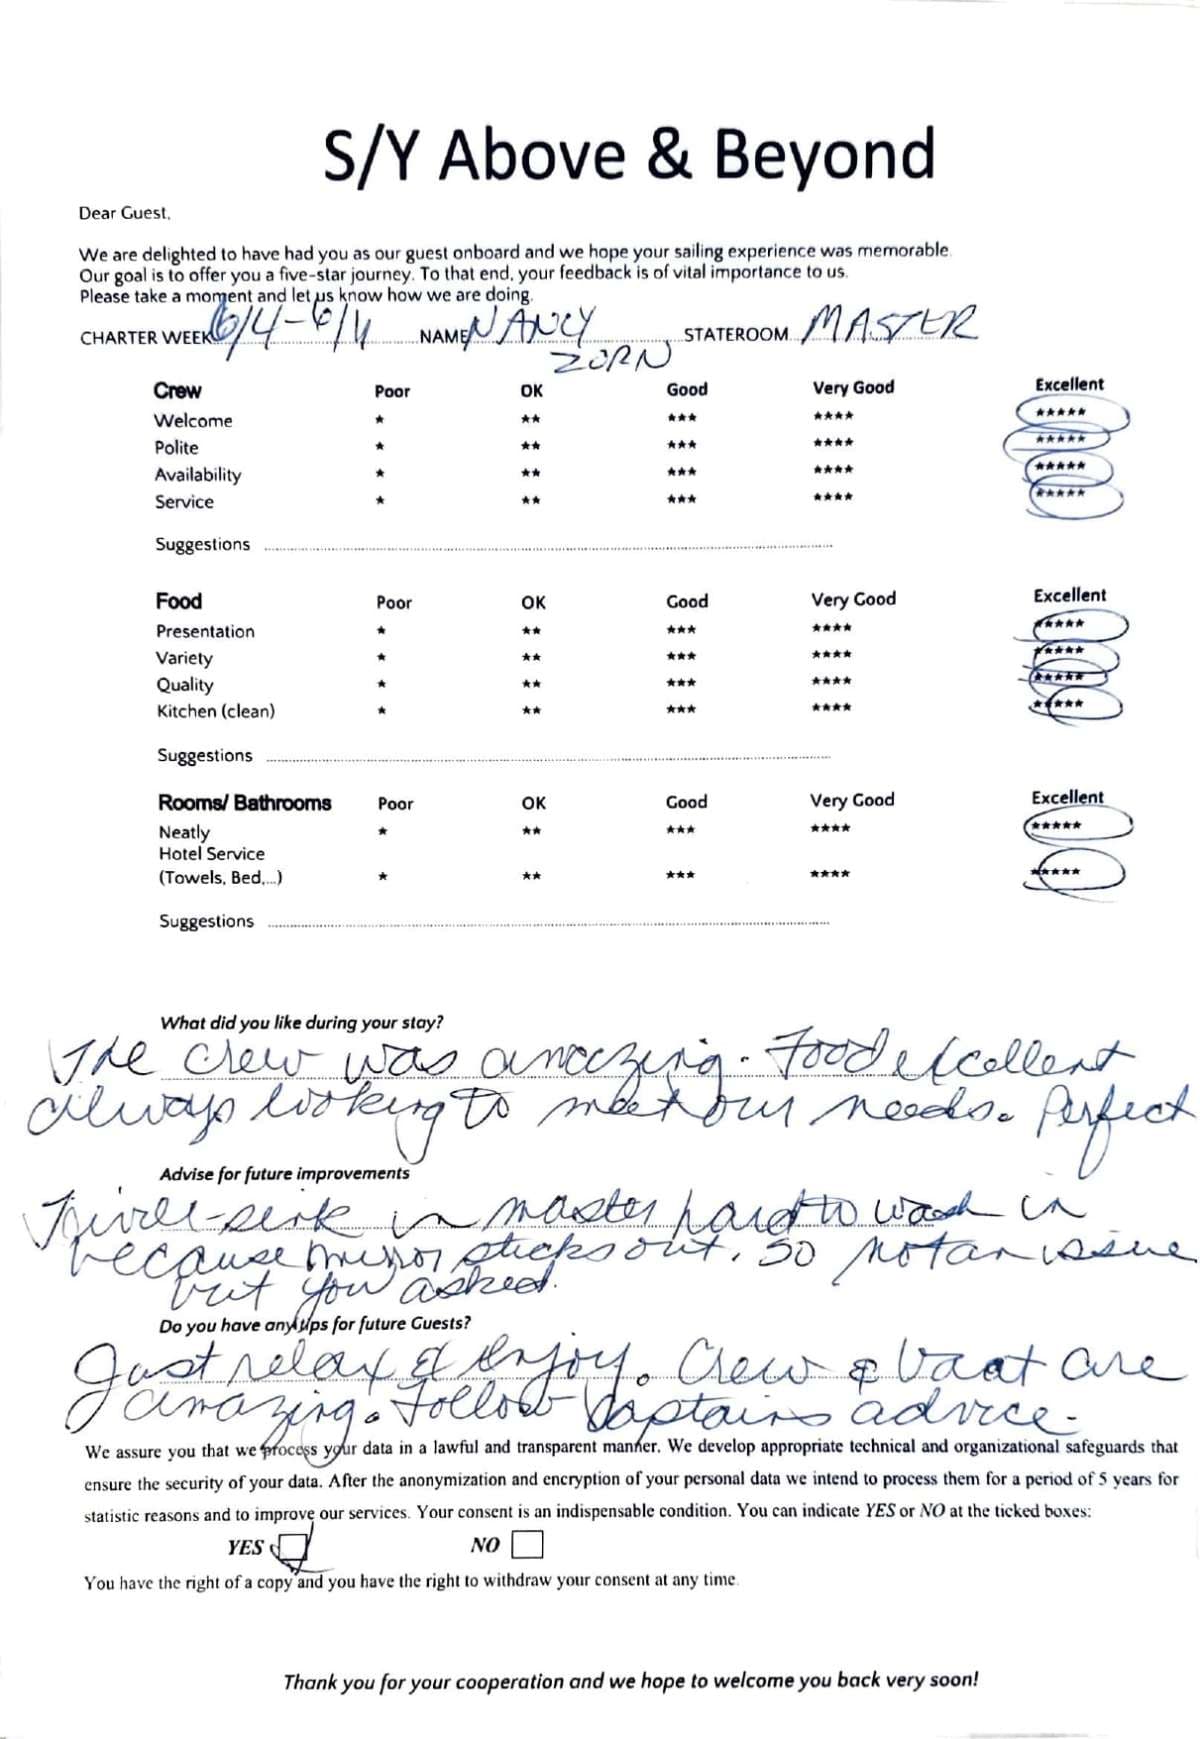 S/Y Above & Beyond
Dear Guest,
We are delighted to have had you as our guest onboard and we hope your sailing experience was memorable.
Our goal is to offer you a five-star journey. To that end, your feedback is of vital importance to us.
Please take a moment and let us know how we are doing.
CHARTER WEEK 6/4-6/11 NAME NANCY ZORN STATEROOM MASTER
Crew Poor OK Good Very Good Excellent
Welcome * ** *** **** *****
Polite * ** *** **** *****
Availability * ** *** **** *****
Service * ** *** **** *****
Suggestions
Food Poor OK Good Very Good Excellent
Presentation * ** *** **** *****
Variety * ** *** **** *****
Quality * ** *** **** *****
Kitchen (clean) * ** *** **** *****
Suggestions
Rooms/ Bathrooms Poor OK Good Very Good Excellent
Neatly * ** *** **** *****
Hotel Service
(Towels, Bed,...) * ** *** **** *****
Suggestions
What did you like during your stay?
The crew was amazing. Food excellent
always looking to meet our needs. Perfect
Advise for future improvements
sink in master hard to wash in
because mirror sticks out, so not an issue
but you asked.
Do you have any tips for future Guests?
Just relax & enjoy. Crew & boat are
amazing. Follow Captains advice.
We assure you that we process your data in a lawful and transparent manner. We develop appropriate technical and organizational safeguards that
ensure the security of your data. After the anonymization and encryption of your personal data we intend to process them for a period of 5 years for
statistic reasons and to improve our services. Your consent is an indispensable condition. You can indicate YES or NO at the ticked boxes:
YES NO
You have the right of a copy and you have the right to withdraw your consent at any time.
Thank you for your cooperation and we hope to welcome you back very soon!